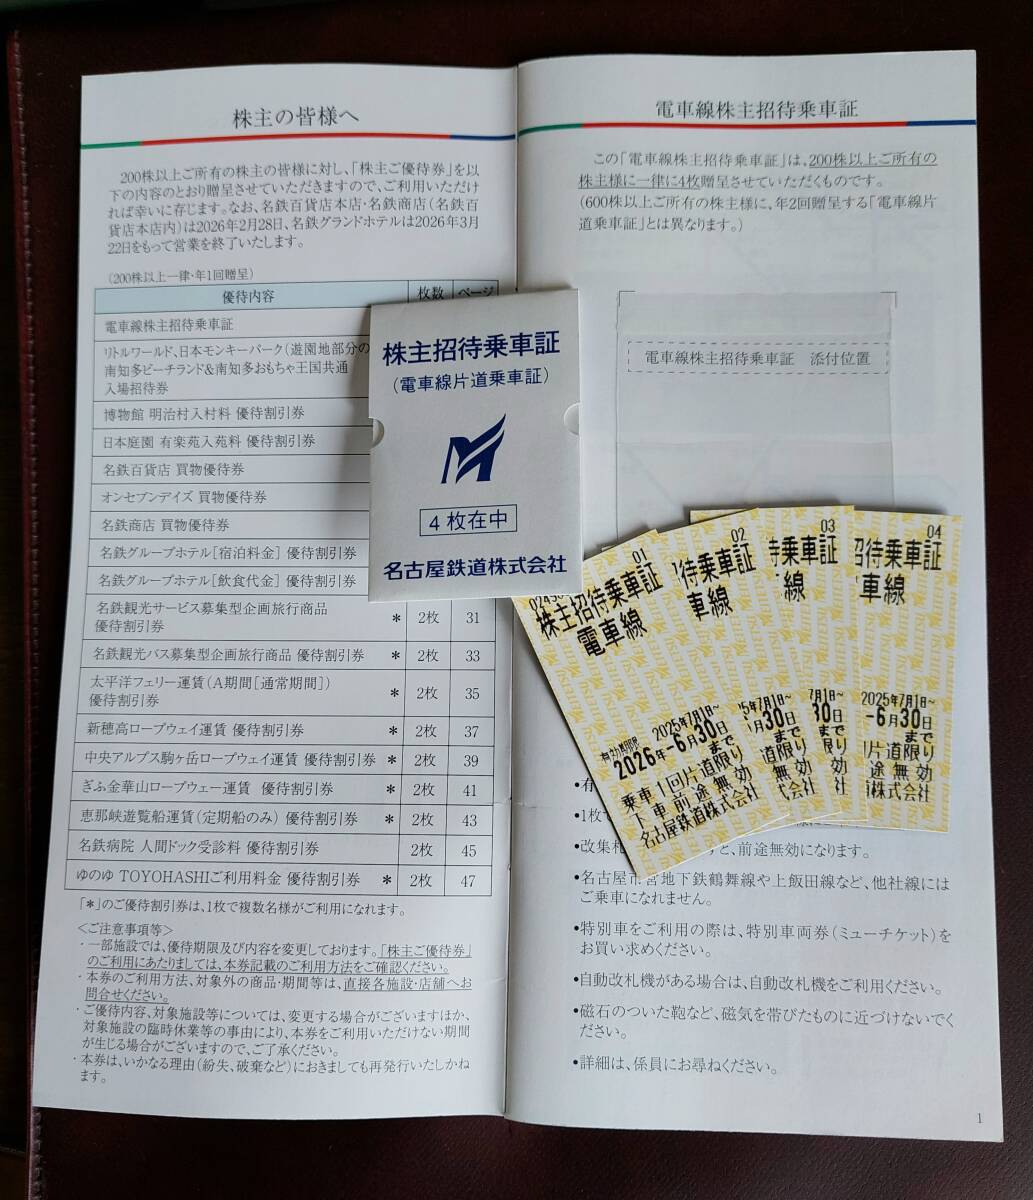 株主の皆様へ
200株以上ご所有の株主の皆様に対し、「株主ご優待券」を以
下の内容のとおり贈呈させていただきますので、ご利用いただけ
れば幸いに存じます。なお、名鉄百貨店本店・名鉄商店(名鉄百
貨店本店内)は2026年2月28日、名鉄グランドホテルは2026年3月
22日をもって営業を終了いたします。
(200株以上一律・年1回贈呈)
優待内容 枚数 ページ
電車線株主招待乗車証
リトルワールド、日本モンキーパーク(遊園地部分の
南知多ビーチランド&南知多おもちゃ王国共通
入場招待券
博物館 明治村入村料 優待割引券
日本庭園 有楽苑入苑料 優待割引券
名鉄百貨店 買物優待券
オンセブンデイズ 買物優待券
名鉄商店 買物優待券
名鉄グループホテル[宿泊料金] 優待割引券
名鉄グループホテル[飲食代金] 優待割引券
名鉄観光サービス募集型企画旅行商品
優待割引券 * 2枚 31
名鉄観光バス募集型企画旅行商品 優待割引券 * 2枚 33
太平洋フェリー運賃(A期間[通常期間])
優待割引券 * 2枚 35
新穂高ロープウェイ運賃 優待割引券 * 2枚 37
中央アルプス駒ヶ岳ロープウェイ運賃 優待割引券 * 2枚 39
ぎふ金華山ロープウェー運賃 優待割引券 * 2枚 41
恵那峡遊覧船運賃(定期船のみ) 優待割引券 * 2枚 43
名鉄病院 人間ドック受診料 優待割引券 2枚 45
ゆのゆ TOYOHASHIご利用料金 優待割引券 * 2枚 47
「*」のご優待割引券は、1枚で複数名様がご利用になれます。
<ご注意事項等>
・一部施設では、優待期限及び内容を変更しております。「株主ご優待券」
のご利用にあたりましては、本券記載のご利用方法をご確認ください。
・本券のご利用方法、対象外の商品・期間等は、直接各施設・店舗へお
問合せください。
・ご優待内容、対象施設等については、変更する場合がございますほか、
対象施設の臨時休業等の事由により、本券をご利用いただけない期間
が生じる場合がございますので、ご了承ください。
・本券は、いかなる理由(紛失、破棄など)におきましても再発行いたしかね
ます。
株主招待乗車証
(電車線片道乗車証)
4枚在中
名古屋鉄道株式会社
電車線株主招待乗車証
この「電車線株主招待乗車証」は、200株以上ご所有の
株主様に一律に4枚贈呈させていただくものです。
(600株以上ご所有の株主様に、年2回贈呈する「電車線片
道乗車証」とは異なります。)
電車線株主招待乗車証 添付位置
01
株主招待乗車証
電車線
2025年7月1日~
2026年-6月30日
まで
乗車1回片道限り
下車前途無効
名古屋鉄道株式会社
02
待乗車証
車線
5年7月1日~
月30日
まで
道限り
無効
株式会社
03
乗車証
線
7月1日~
30日
まで
限り
無効
式会社
04
招待乗車証
車線
2025年7月1日~
-6月30日
まで
片道限り
途無効
道株式会社
•有
•1枚
•改集札 と、前途無効になります。
•名古屋市営地下鉄鶴舞線や上飯田線など、他社線には
ご乗車になれません。
•特別車をご利用の際は、特別車両券(ミューチケット)を
お買い求めください。
•自動改札機がある場合は、自動改札機をご利用ください。
•磁石のついた鞄など、磁気を帯びたものに近づけないでく
ださい。
•詳細は、係員にお尋ねください。
1